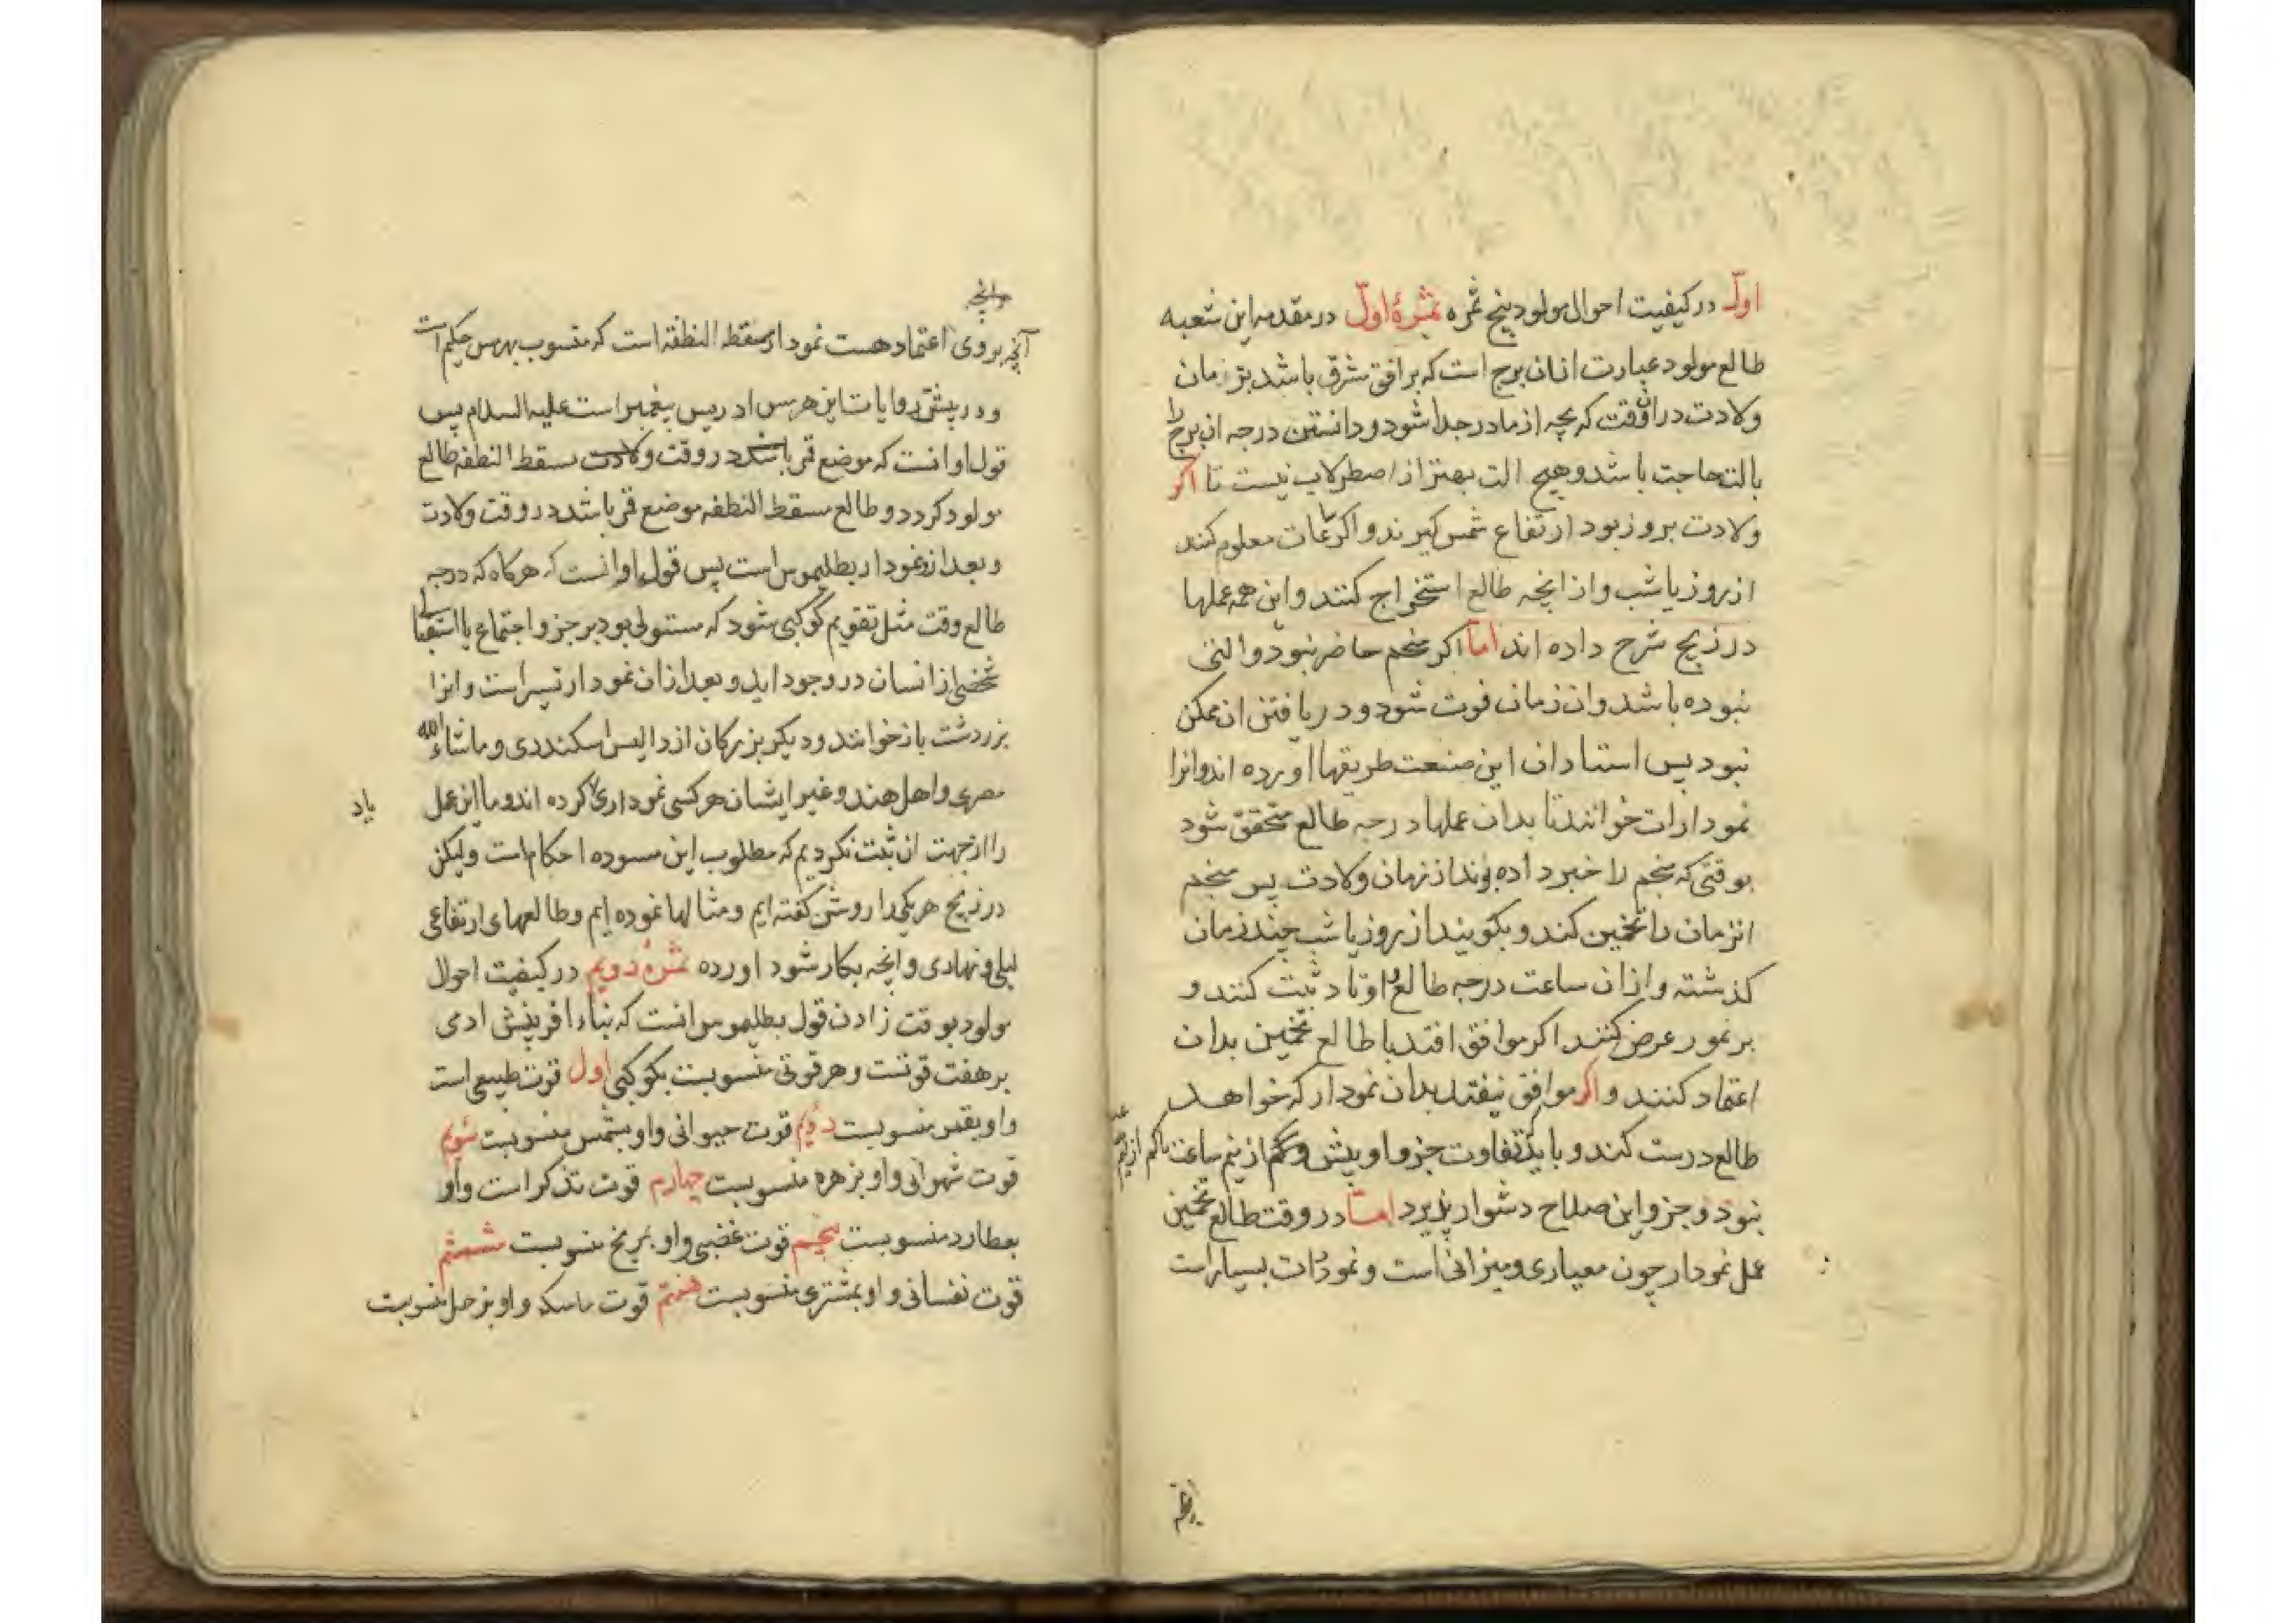 اول در کیفیت احوال مولود پنج ثمره ثمرهٔ اول در مقدمه این شعبه
طالع مولود عبارت ازان برج است که بر افق مشرق باشد بزمان
ولادت دران وقت که بچه از مادر جدا شود و دانستن درجه ان برج را
بالت حاجت باشد و هیچ الت بهتر از اصطرلاب نیست تا اکر
ولادت بروز بود ارتفاع شمس کیرند و اکر ساعات معلوم کنند
از روز یا شب و از انچه طالع استخراج کنند و این همه عملها
در زیج شرح داده اند اما اکر منجم حاضر نبود و التی
نبوده باشد و ان زمان فوت شود و دریافتن ان ممکن
نبود پس استادان این صنعت طریقها اورده اند و انرا
نمودارات خوانند تا بدان عملها درجه طالع متحقق شود
بوقتی که منجم را خبر داده بوند از زمان ولادت پس منجم
انزمان را تخمین کند و بکویند از روز یا شب چند زمان
کذشته و ازان ساعت درجه طالع و اوتاد ثبت کنند و
بر نمودار عرض کنند اکر موافق افتد با طالع تخمین بدان
اعتماد کنند و اکر موافق نیفتد بدان نمودار که خواهد
طالع درست کند و باید که تفاوت جزو او بیش و کم از نیم ساعت
نبود و جز و این صلاح دشوار پذیرد اما در وقت طالع تخمین
عمل نمودار چون معیاری و میزانی است و نمودارات بسیار است
وانچه
آنچه بروی اعتماد هست نمودار مسقط النطفه است که منسوب بهرمس حکیم است
و در پیشتر روایات این هرمس ادریس پیغمبر است علیه السلام پس
قول او انست که موضع قمر باشد در وقت ولادت مسقط النطفه طالع
مولود کردد و طالع مسقط النطفه موضع قمر باشد در وقت ولادت
و بعد ازو نمودار بطلیموس است پس قول او انست که هرکاه که درجه
طالع وقت مثل تقویم کوکبی شود که مستولی بود بر جزو اجتماع یا استقبالی
شخصی از انسان در وجود اید و بعد ازان نمودار تسیر است و انرا
بزردشت باز خوانند و دیکر بزرکان از والیس اسکندری و ماشاء الله
مصری و اهل هند و غیر ایشان هر کسی نموداری کرده اند و ما این عمل
یاد
را از جهت ان ثبت نکردیم که مطلوب این مسوده احکام است و لیکن
در زیج هر یکی را روشن کفته ایم و مثالها نموده ایم و طالعهای ارتفاعی
لیلی و نهاری و انچه بکار شود اورده ثمرهٔ دویم در کیفیت احوال
مولود بوقت زادن قول بطلیموس انست که بناء افرینش ادمی
بر هفت قوتست و هر قوتی منسوبست بکوکبی اول قوت طبیعی است
و او بقمر منسوبست دویم قوت حیوانی و او بشمس منسوبست سویم
قوت شهوانی و او بزهره منسوبست چهارم قوت تذکر است و او
بعطارد منسوبست پنجم قوت غضبی و او بمریخ منسوبست ششم
قوت نفسانی و او بمشتری منسوبست هفتم قوت ماسکه و او بزحل منسوبست